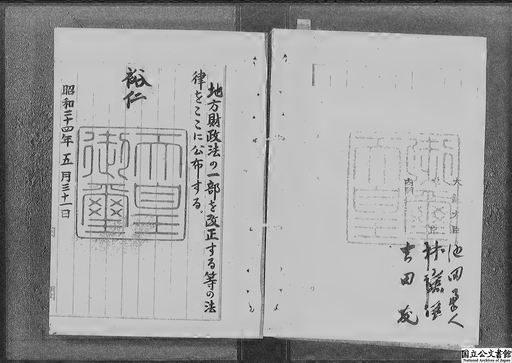 大蔵大臣
池田勇人
林譲治
内閣
吉田茂
地方財政法の一部を改正する等の法
律をここに公布する。
裕仁
天皇
御璽
昭和二十四年五月三十一日
国立公文書館
National Archives of Japan